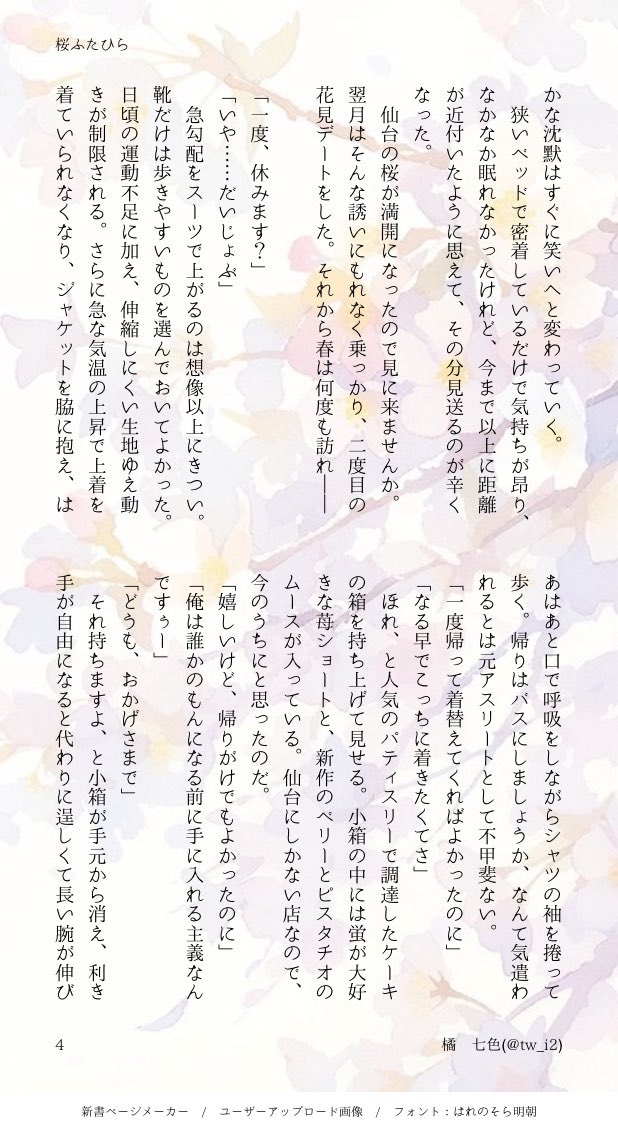 桜ふたひら
かな沈黙はすぐに笑いへと変わっていく。
　狭いベッドで密着しているだけで気持ちが昂り、
なかなか眠れなかったけれど、今まで以上に距離
が近付いたように思えて、その分見送るのが辛く
なった。
　仙台の桜が満開になったので見に来ませんか。
翌月はそんな誘いにもれなく乗っかり、二度目の
花見デートをした。それから春は何度も訪れ――
「一度、休みます？」
「いや……だいじょぶ」
　急勾配をスーツで上がるのは想像以上にきつい。
靴だけは歩きやすいものを選んでおいてよかった。
日頃の運動不足に加え、伸縮しにくい生地ゆえ動
きが制限される。さらに急な気温の上昇で上着を
着ていられなくなり、ジャケットを脇に抱え、は
あはあと口で呼吸をしながらシャツの袖を捲って
歩く。帰りはバスにしましょうか、なんて気遣わ
れるとは元アスリートとして不甲斐ない。
「一度帰って着替えてくればよかったのに」
「なる早でこっちに着きたくてさ」
　ほれ、と人気のパティスリーで調達したケーキ
の箱を持ち上げて見せる。小箱の中には蛍が大好
きな苺ショートと、新作のベリーとピスタチオの
ムースが入っている。仙台にしかない店なので、
今のうちにと思ったのだ。
「嬉しいけど、帰りがけでもよかったのに」
「俺は誰かのもんになる前に手に入れる主義なん
ですぅー」
「どうも、おかげさまで」
　それ持ちますよ、と小箱が手元から消え、利き
手が自由になると代わりに逞しくて長い腕が伸び
4
橘　七色(@tw_i2)
新書ページメーカー　/　ユーザーアップロード画像　/　フォント：はれのそら明朝